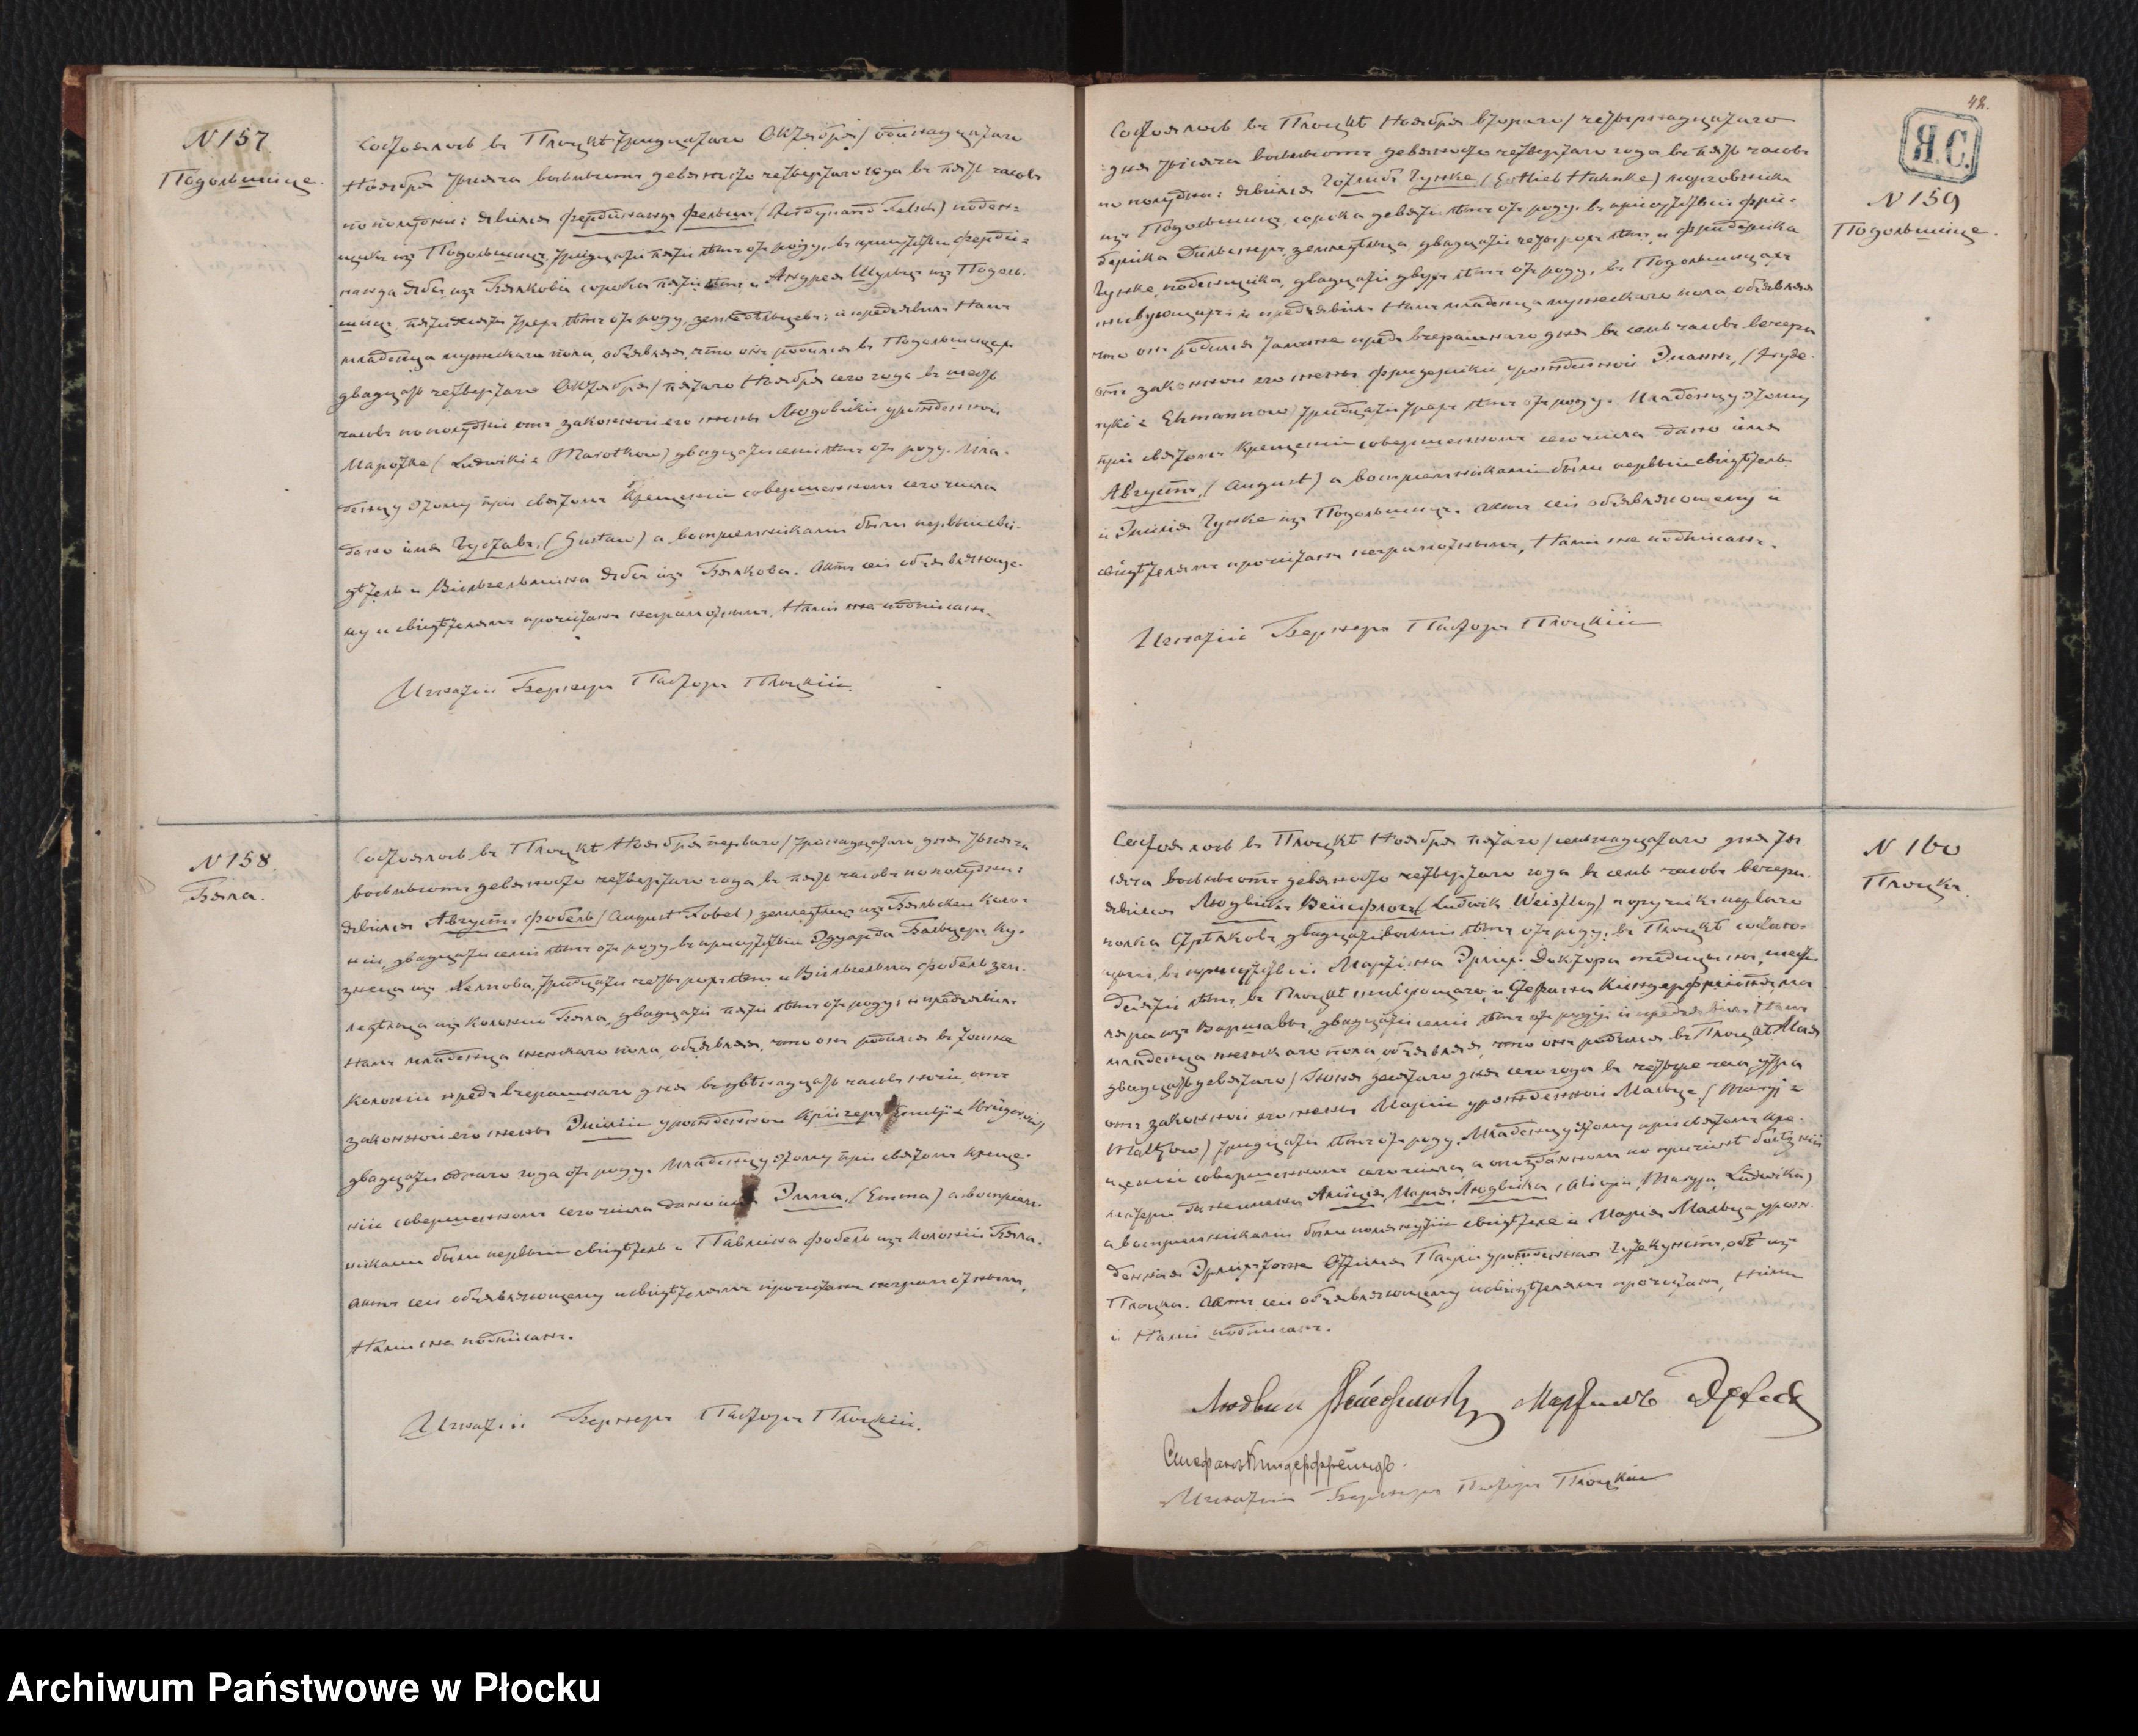 N 157
Подольшице.
Состоялось въ Плоцкѣ тридцатаго Октября/одинадцатаго
Ноября тысяча восьмьсотъ девяносто четвертаго года въ пять часовъ
по полудни: явился Фердинандъ Фельшъ (Ferdynand Felsch) поден=
щикъ изъ Подольшицъ, тридцати пяти лѣтъ отъ роду, въ присутствіи Ферди=
нанда Яба изъ Бялкова сорока пяти лѣтъ и Андрея Шульца изъ Подоль.
шицъ, пятидесяти трехъ лѣтъ отъ роду, земледѣльцевъ: и предъявилъ Намъ
младенца мужескаго пола, объявляя, что онъ родился въ Подольшицахъ
двадцать четвертаго Октября/пятаго Ноября сего года въ шесть
часовъ по полудни отъ законной его жены Людовики урожденной
Маротке (Ludwiki z Marotkow) двадцати семи лѣтъ отъ роду. Мла-
денцу этому при святомъ Крещеніи совершенномъ сего числа
дано имя Густавъ, (Gustaw) а воспріемниками были первый сви-
дѣтель и Вильгельмина Яба изъ Бялкова. Актъ сей объявляюще-
му и свидѣтелямъ прочитанъ неграмотнымъ, Нами же подписанъ.
Игнатій Бернеръ Пасторъ Плоцкій.
N 158.
Бяла.
Состоялось въ Плоцкѣ Ноября перваго/тринадцатаго дня тысяча
восьмьсотъ девяносто четвертаго года въ пять часовъ по полудни:
явился Августъ Фобель (August Fobel) земледѣлецъ изъ Бяльской Коло-
ніи, двадцати семи лѣтъ отъ роду, въ присутствіи Эдуарда Бальцеръ ку-
знеца изъ тридцати четырехъ лѣтъ и Вильгельма Фобель зем-
ледѣльца изъ Колоніи Бяла, двадцати пяти лѣтъ отъ роду; и предъявилъ
Намъ младенца женскаго пола, объявляя, что онъ родился въ тойже
Колоніи предъ вчерашняго дня въ двѣнадцать часовъ ночи, отъ
законной его жены Эмиліи урожденной Кригеръ (Emilji z Krügerow)
двадцати одного года отъ роду. Младенцу этому при святомъ Креще-
ніи совершенномъ сего числа дано имя Эмма, (Emma) а воспріем-
никами были первый свидѣтель и Павлина Фобель изъ Колоніи Бяла.
Актъ сей объявляющему и свидѣтелямъ прочитанъ неграмотнымъ,
Нами же подписанъ.
Игнатій Бернеръ Пасторъ Плоцкій.
42.
Я.С.
N 159
Подольшице.
Состоялось въ Плоцкѣ Ноября втораго/четырнадцатаго
дня тысяча восьмьсотъ девяносто четвертаго года въ пять часовъ
по полудни: явился Готлибъ Гунке (Gottlieb Huhnke) торговникъ
изъ Подольшицъ, сорока девяти лѣтъ отъ роду, въ присутствіи Фри-
дериха земледѣльца, двадцати четырехъ лѣтъ, и Фридериха
Гунке, поденщика, двадцати двухъ лѣтъ отъ роду, въ Подольшицахъ
живущихъ: и предъявилъ Намъ младенца мужескаго пола объявляя
что онъ родился тамже предъ вчерашняго дня въ семь часовъ вечера
отъ законной его жены Фридерики урожденной Эманнъ, (Fryde-
ryki z Ehmannow) тридцати трехъ лѣтъ отъ роду. Младенцу этому
при святомъ Крещеніи совершенномъ сего числа дано имя
Августъ, (August) а воспріемниками были первый свидѣтель
и Эмилія Гунке изъ Подольшицъ. Актъ сей объявляющему и
свидѣтелямъ прочитанъ неграмотнымъ, Нами же подписанъ.
Игнатій Бернеръ Пасторъ Плоцкій
N 160
Плоцкъ.
Состоялось въ Плоцкѣ Ноября пятаго/семнадцатаго дня ты-
сяча восьмьсотъ девяносто четвертаго года въ семь часовъ вечера.
явился Людвикъ Вейсфлогъ (Ludwik Weisflog) поручикъ перваго
полка Стрѣлковъ двадцати восьми лѣтъ отъ роду, въ Плоцкѣ
въ присутствіи Мартина Доктора медицины, шести
десяти лѣтъ, въ Плоцкѣ живущаго, и Стефана Киндерфрейндъ,
изъ Варшавы, двадцати семи лѣтъ отъ роду; и предъявилъ Намъ
младенца женскаго пола, объявляя, что онъ родился въ Плоцкѣ Мая
двадцать девятаго/Іюня десятаго дня сего года въ четыре часа утра
отъ законной его жены Маріи урожденной Мальце (Maryi z
Maltzow) тридцати лѣтъ отъ роду. Младенцу этому при святомъ Кре-
щеніи совершенномъ сего числа, а опозданномъ по причинѣ болѣзни
матери даны имена Алиція, Марія, Людвика, (Alicyja, Maryja, Ludwika)
а воспріемниками были помянутый свидѣтель и Марія Мальце урож-
денная Оттилія Паули урожденная обѣ изъ
Плоцка. Актъ сей объявляющему и свидѣтелямъ прочитанъ, Ними
и Нами подписанъ.
Людвигъ Вейсфлогъ Мартинъ
Стефанъ Киндерфрейндъ.
Игнатій Бернеръ Пасторъ Плоцкій
Archiwum Państwowe w Płocku